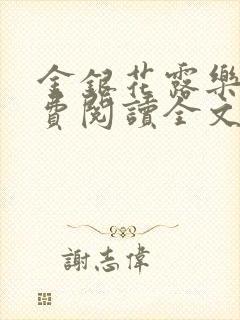 金銀花露樂
費閱讀全文
謝志偉